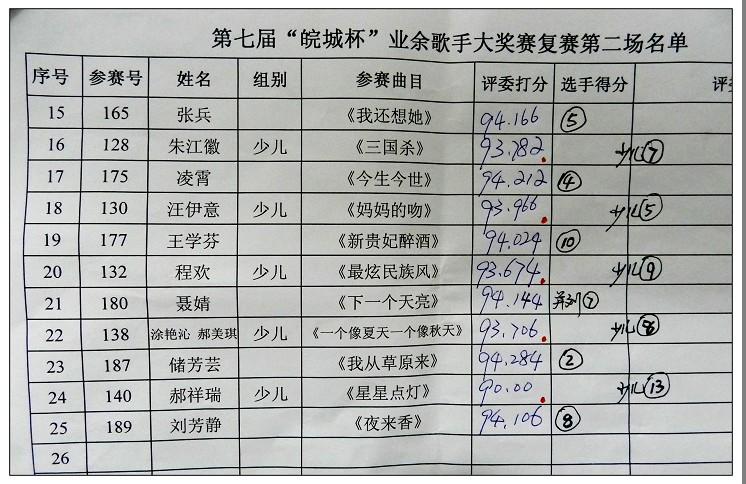 第七届“皖城杯”业余歌手大奖赛复赛第二场名单
序号 参赛号 姓名 组别 参赛曲目 评委打分 选手得分
15 165 张兵 《我还想她》 94.166 ⑤
16 128 朱江徽 少儿 《三国杀》 93.782 少儿⑦
17 175 凌霄 《今生今世》 94.212 ④
18 130 汪伊意 少儿 《妈妈的吻》 93.966 少儿⑤
19 177 王学芬 《新贵妃醉酒》 94.024 ⑩
20 132 程欢 少儿 《最炫民族风》 93.674 少儿⑨
21 180 聂婧 《下一个天亮》 94.144 并列⑦
22 138 涂艳沁 郝美琪 少儿 《一个像夏天一个像秋天》 93.706 少儿⑧
23 187 储芳芸 《我从草原来》 94.284 ②
24 140 郝祥瑞 少儿 《星星点灯》 90.00 少儿⑬
25 189 刘芳静 《夜来香》 94.106 ⑧
26